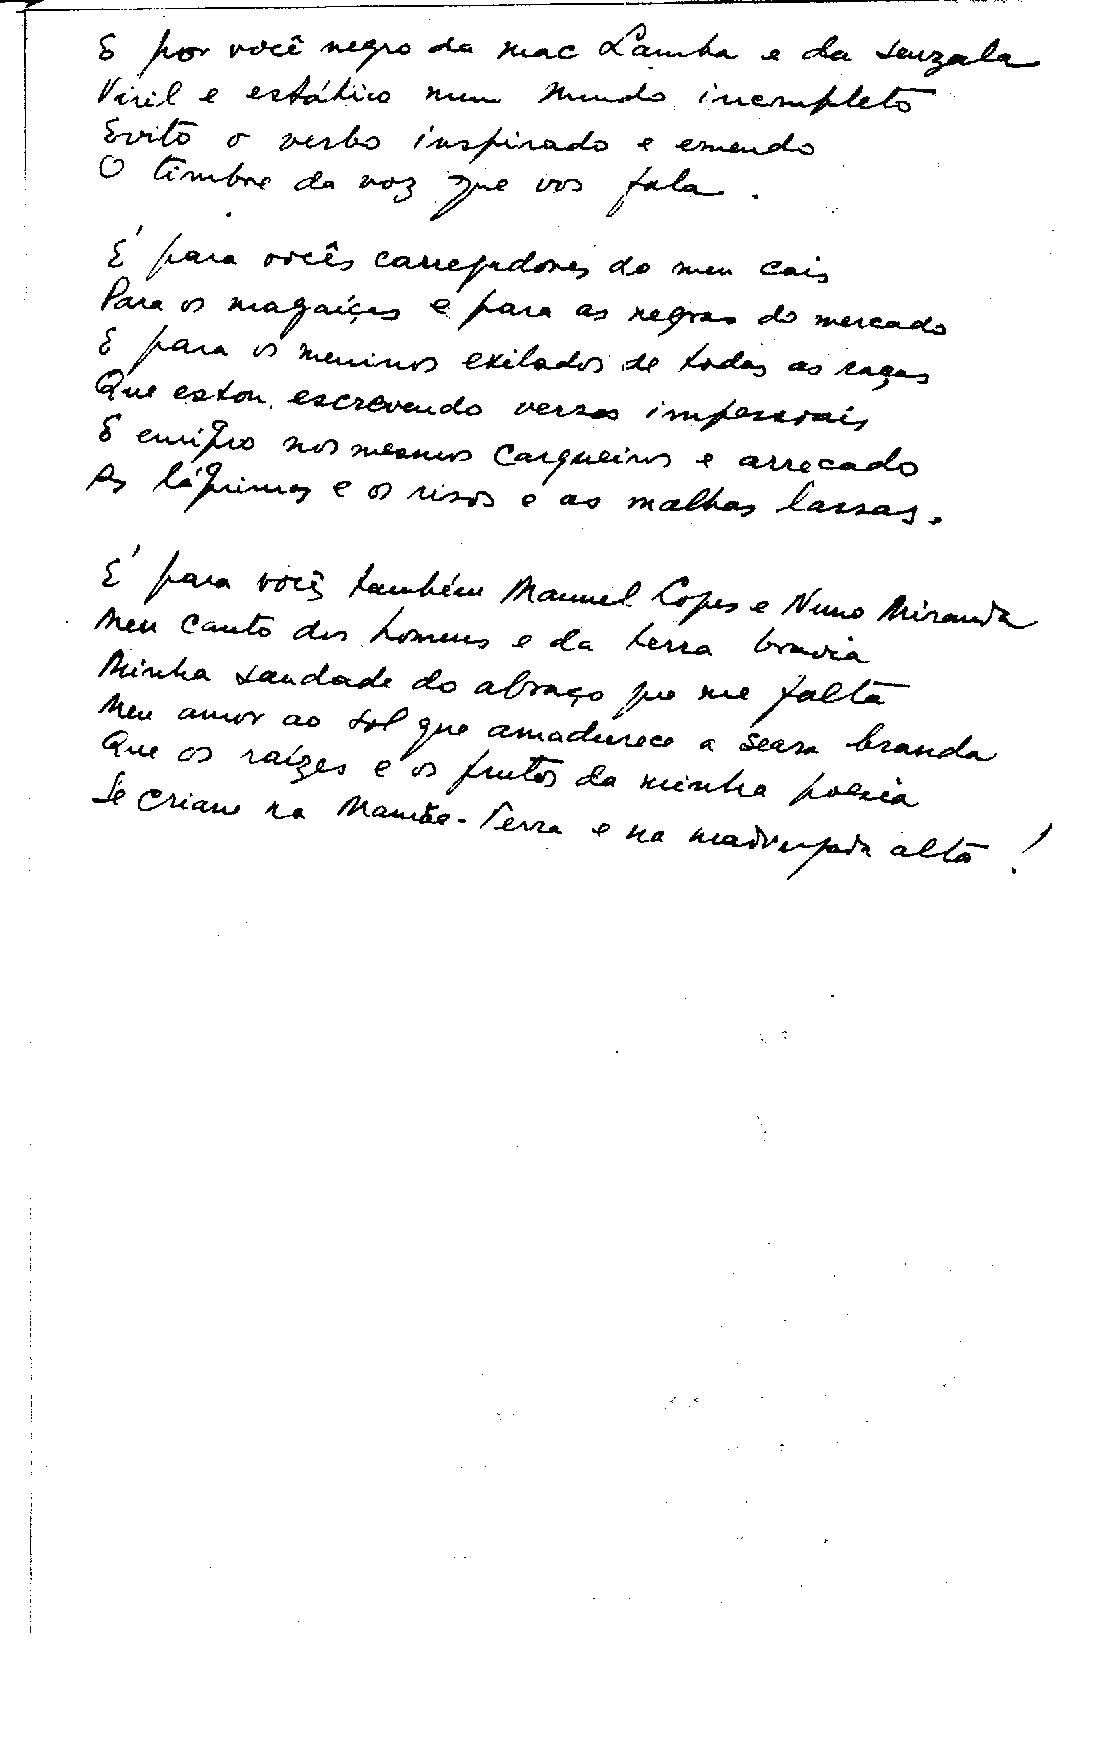 E por você negro da mac Lamba e da senzala
Viril e estático num mundo incompleto
Evito o verbo inspirado e emendo
O timbre da voz que vos fala.
É para vocês carregadores do meu cais
Para os magaíças e para as negras do mercado
E para os meninos exilados de todas as raças
Que estou escrevendo versos impessoais
E emigro nos mesmos cargueiros e arrecado
As lágrimas e os risos e as malhas lassas.
É para você também Manuel Lopes e Nuno Miranda
Meu canto dos homens e da terra bravia
Minha saudade do abraço que me falta
Meu amor ao sol que amadurece a seara branda
Que as raízes e os frutos da minha poesia
Se criam na Mamãe-Terra e na madrugada alta!